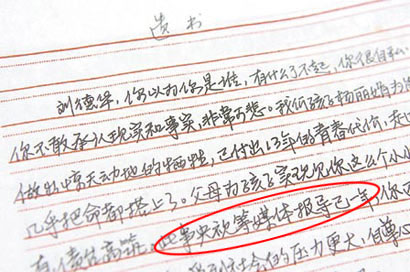 遗书
刘德华，你以为你是谁，有什么了不起，你很自私，
你不敢承认现实和事实，非常可悲。我低孩子杨丽娟为
做的惊天动地的牺牲，已付出13年的青春代价，
几乎把命都搭上了。父母为孩子实现见你这么个小小
高，此事央视等媒体报导已一年，你
的压力更大，自尊心